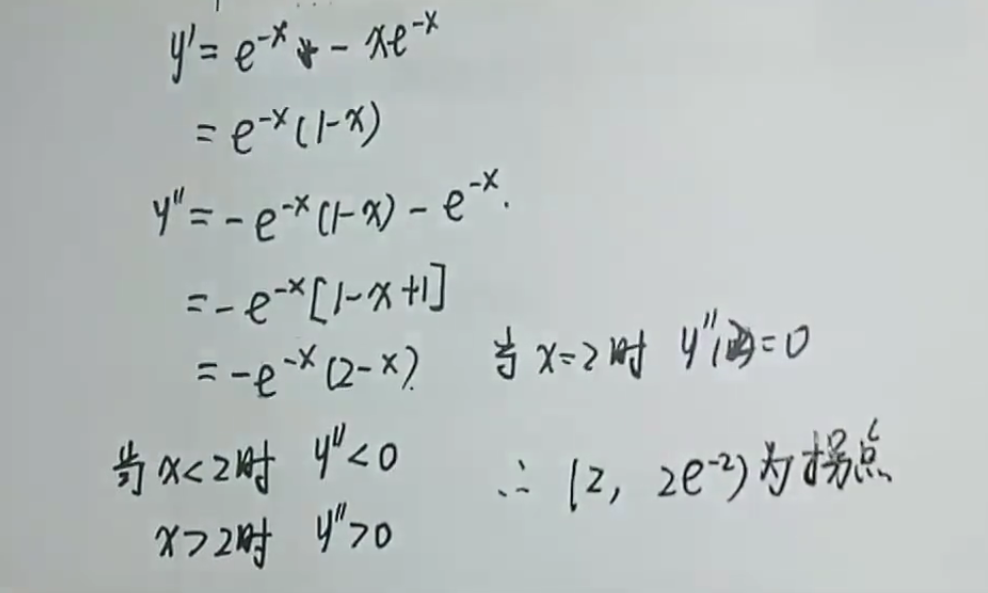 y' = e^{-x} - xe^{-x}
= e^{-x}(1-x)
y'' = -e^{-x}(1-x) - e^{-x}.
= -e^{-x}[1-x+1]
= -e^{-x}(2-x)
当 x=2时 y''(2)=0
当 x<2时 y''<0
x>2时 y''>0
∴ (2, 2e^{-2})为拐点